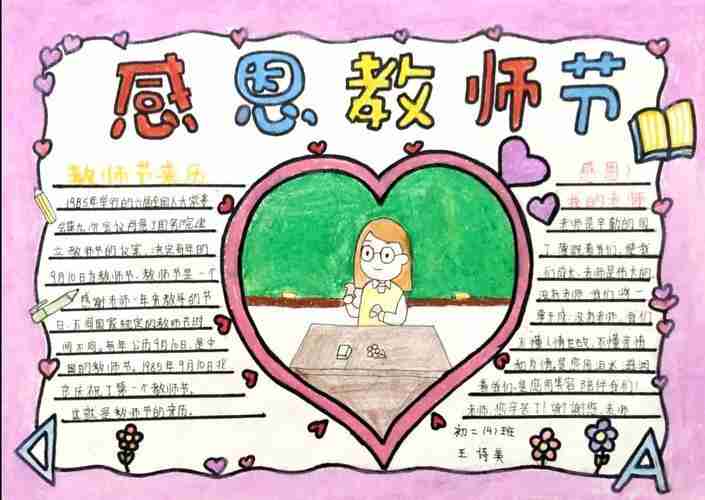 感恩教师节
教师节来历
1985年举行的六届全国人大常委
会第九次会议同意了国务院建
立教师节的议案,决定每年的
9月10日为教师节.教师节是一个
感谢老师一年来教导的节
日,不同国家规定的教师节时
间不同,每年公历9月10日,是中
国的教师节,1985年9月10日,北
京庆祝了第一个教师节,
这就是教师节的来历.
感恩!
我的老师
老师是辛勤的园
丁灌溉着我们,使我
们成长,老师是伟大的
没有老师,我们
事无成,没有老师,我们
不懂人情世故,不懂
是您用 滋润
着我们,是您用笑容陪伴我们!
老师,您辛苦了!谢谢您,老师
初二(4)班
王诗美